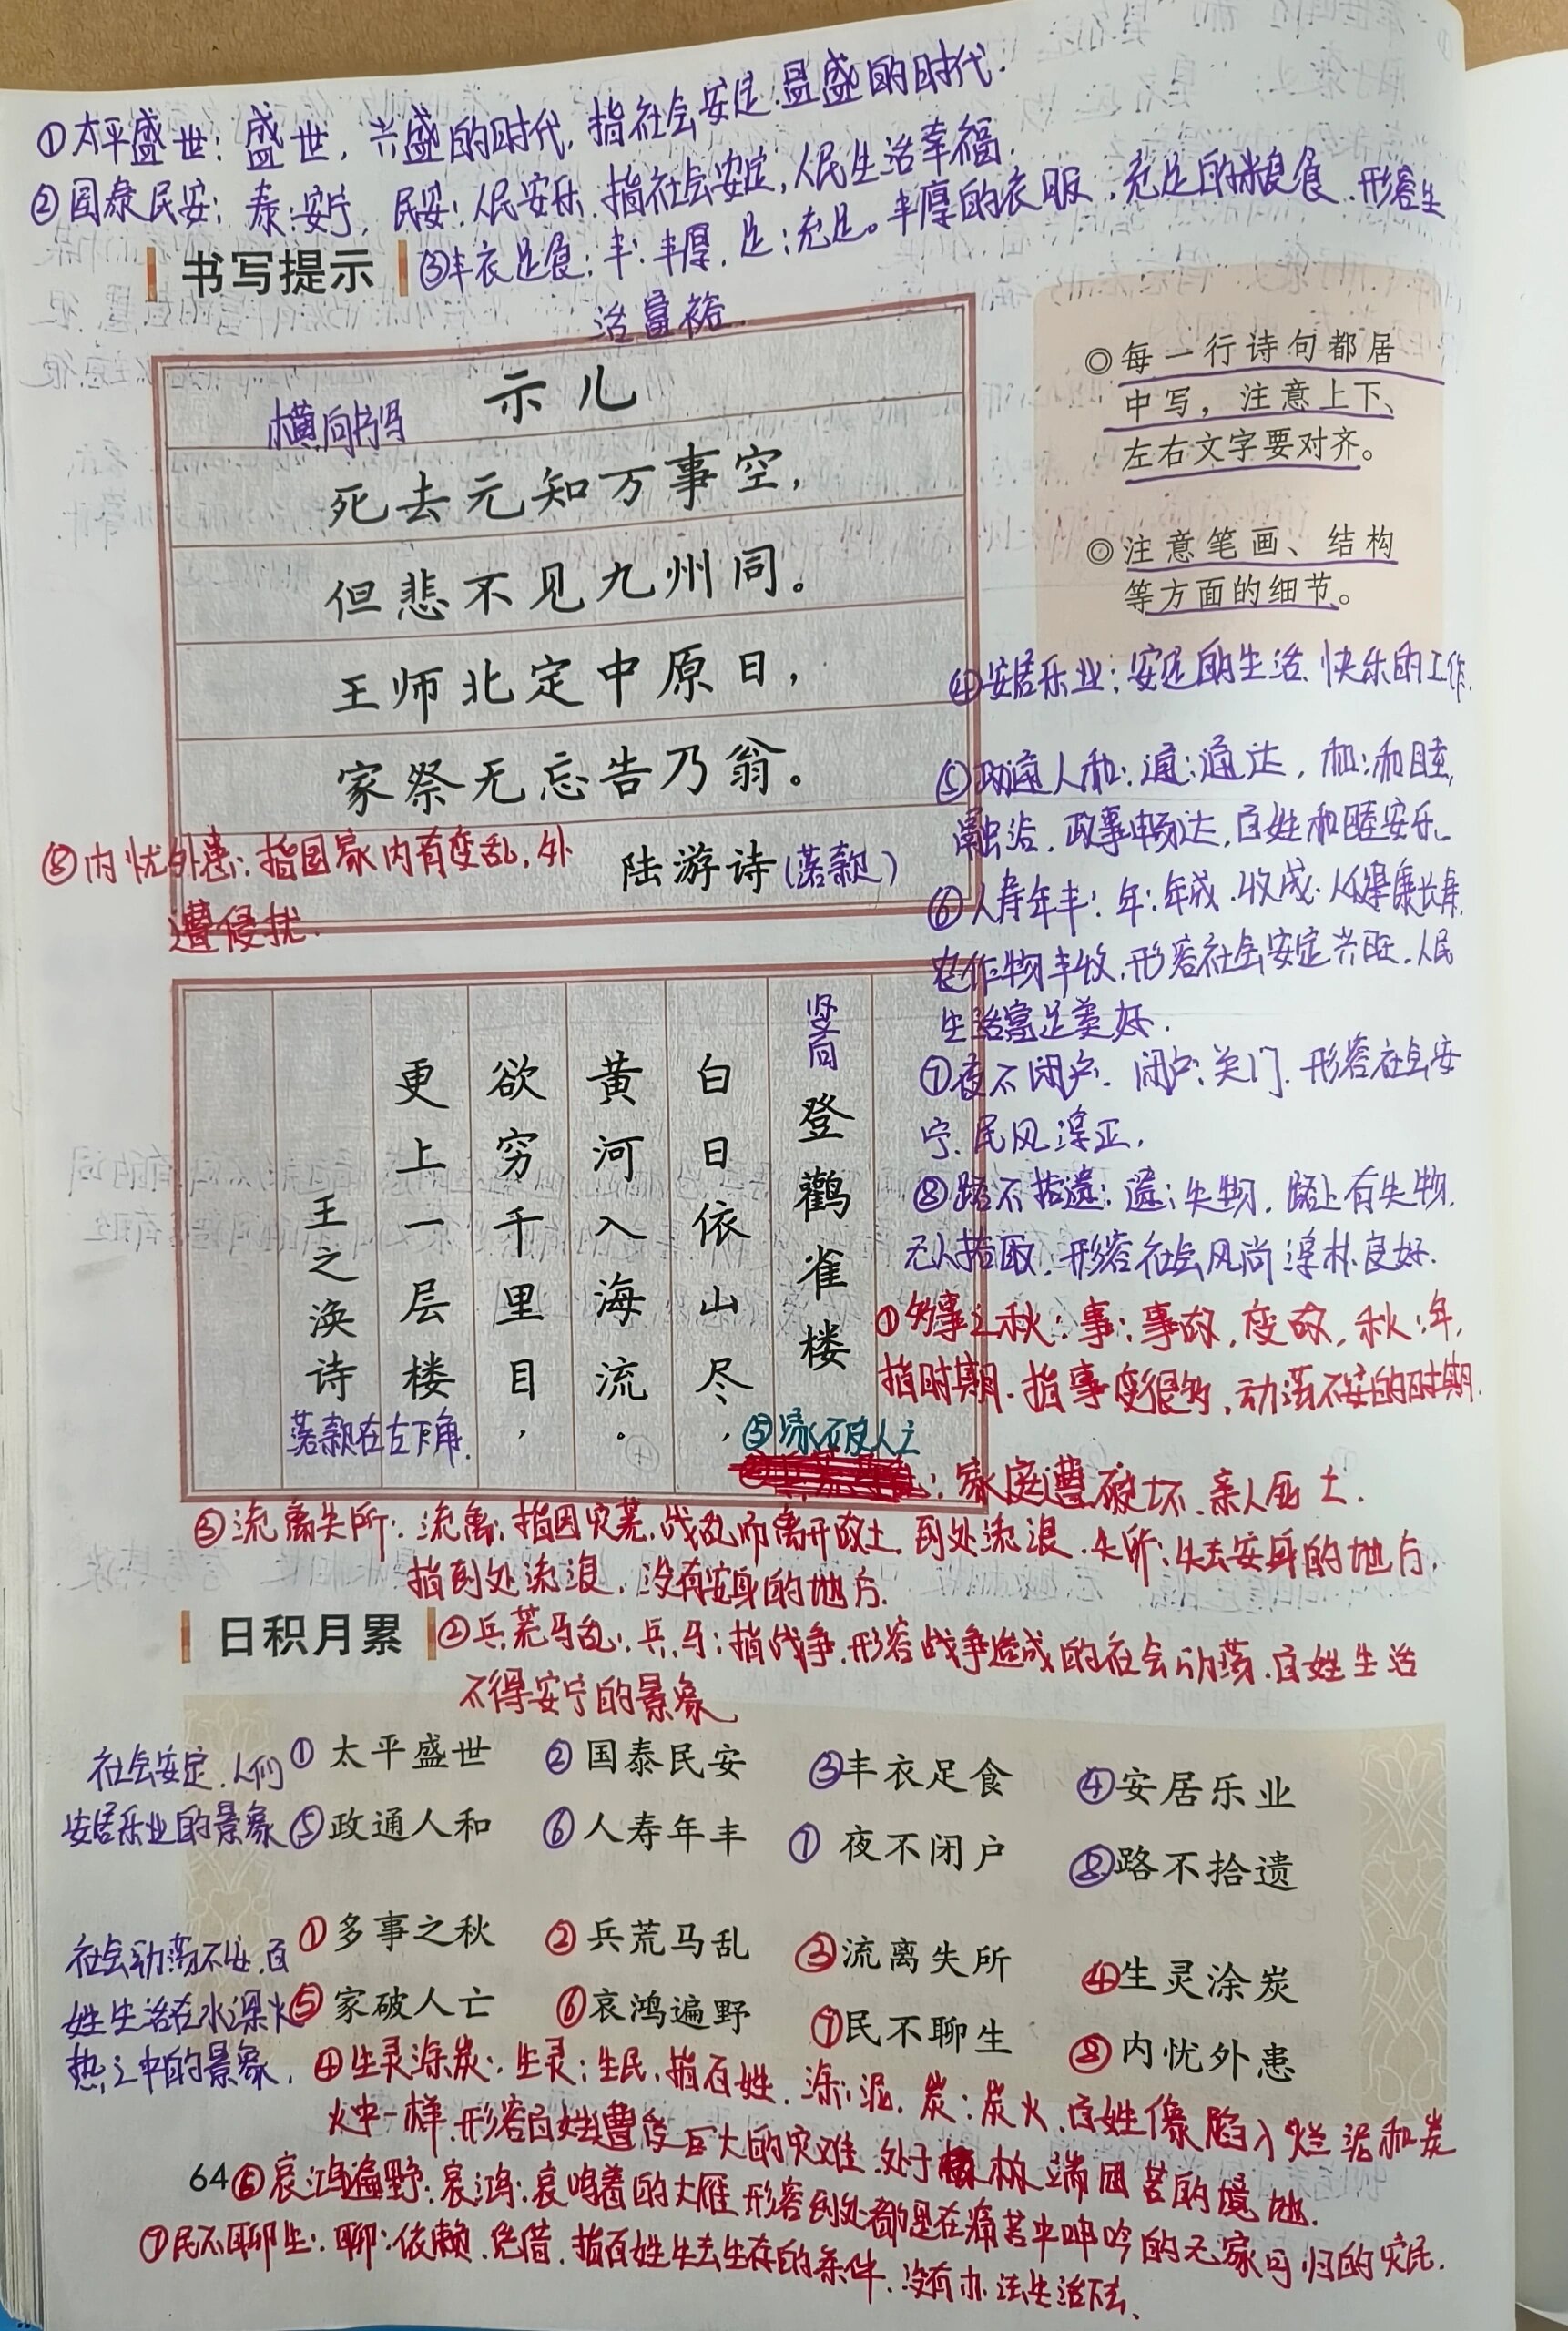 ①太平盛世：盛世，兴盛的时代，指社会安定.昌盛的时代.
②国泰民安：泰：安宁，民安：人民安乐.指社会安定，人民生活幸福.
书写提示
③丰衣足食：丰：丰厚，足：充足。丰厚的衣服，充足的粮食.形容生
活富裕.
示儿
横向书写
死去元知万事空，
但悲不见九州同。
王师北定中原日，
家祭无忘告乃翁。
陆游诗(落款)
◎每一行诗句都居
中写，注意上下、
左右文字要对齐。
◎注意笔画、结构
等方面的细节。
④安居乐业：安定的生活、快乐的工作.
⑤政通人和：通：通达，和：和睦，
融洽.政事畅达，百姓和睦安乐.
⑥人寿年丰：年：年成.收成.人健康长寿.
农作物丰收，形容社会安定兴旺.人民
生活富足美好.
⑦夜不闭户.闭户：关门.形容社会安
宁.民风淳正.
⑧路不拾遗：遗：失物.路上有失物.
无人拾取.形容社会风尚淳朴良好.
⑧内忧外患：指国家内有变乱，外
遭侵扰.
竖向
登鹳雀楼
白日依山尽，
黄河入海流。
欲穷千里目，
更上一层楼
王之涣诗
落款在左下角.
①多事之秋：事：事故，变故，秋：年，
指时期.指事变很多，动荡不安的时期.
⑤家破人亡
：家庭遭破坏.亲人死亡.
③流离失所：流离：指因灾荒.战乱而离开故土.到处流浪.失所：失去安身的地方.
指到处流浪，没有安身的地方.
日积月累
②兵荒马乱：兵.马：指战争.形容战争造成的社会动荡.百姓生活
不得安宁的景象
社会安定.人们
安居乐业的景象
①太平盛世 ②国泰民安 ③丰衣足食 ④安居乐业
⑤政通人和 ⑥人寿年丰 ⑦夜不闭户 ⑧路不拾遗
社会动荡不安.百
姓生活在水深火
热之中的景象.
①多事之秋 ②兵荒马乱 ③流离失所 ④生灵涂炭
⑤家破人亡 ⑥哀鸿遍野 ⑦民不聊生 ⑧内忧外患
④生灵涂炭：生灵：生民，指百姓.涂：泥.炭：炭火.百姓像陷入烂泥和炭
火中一样.形容百姓遭受巨大的灾难.处于极端困苦的境地.
64
⑥哀鸿遍野：哀鸿：哀鸣着的大雁.形容到处都是在痛苦中呻吟的无家可归的灾民.
⑦民不聊生：聊：依赖.凭借.指百姓失去生存的条件.没有办法生活下去、